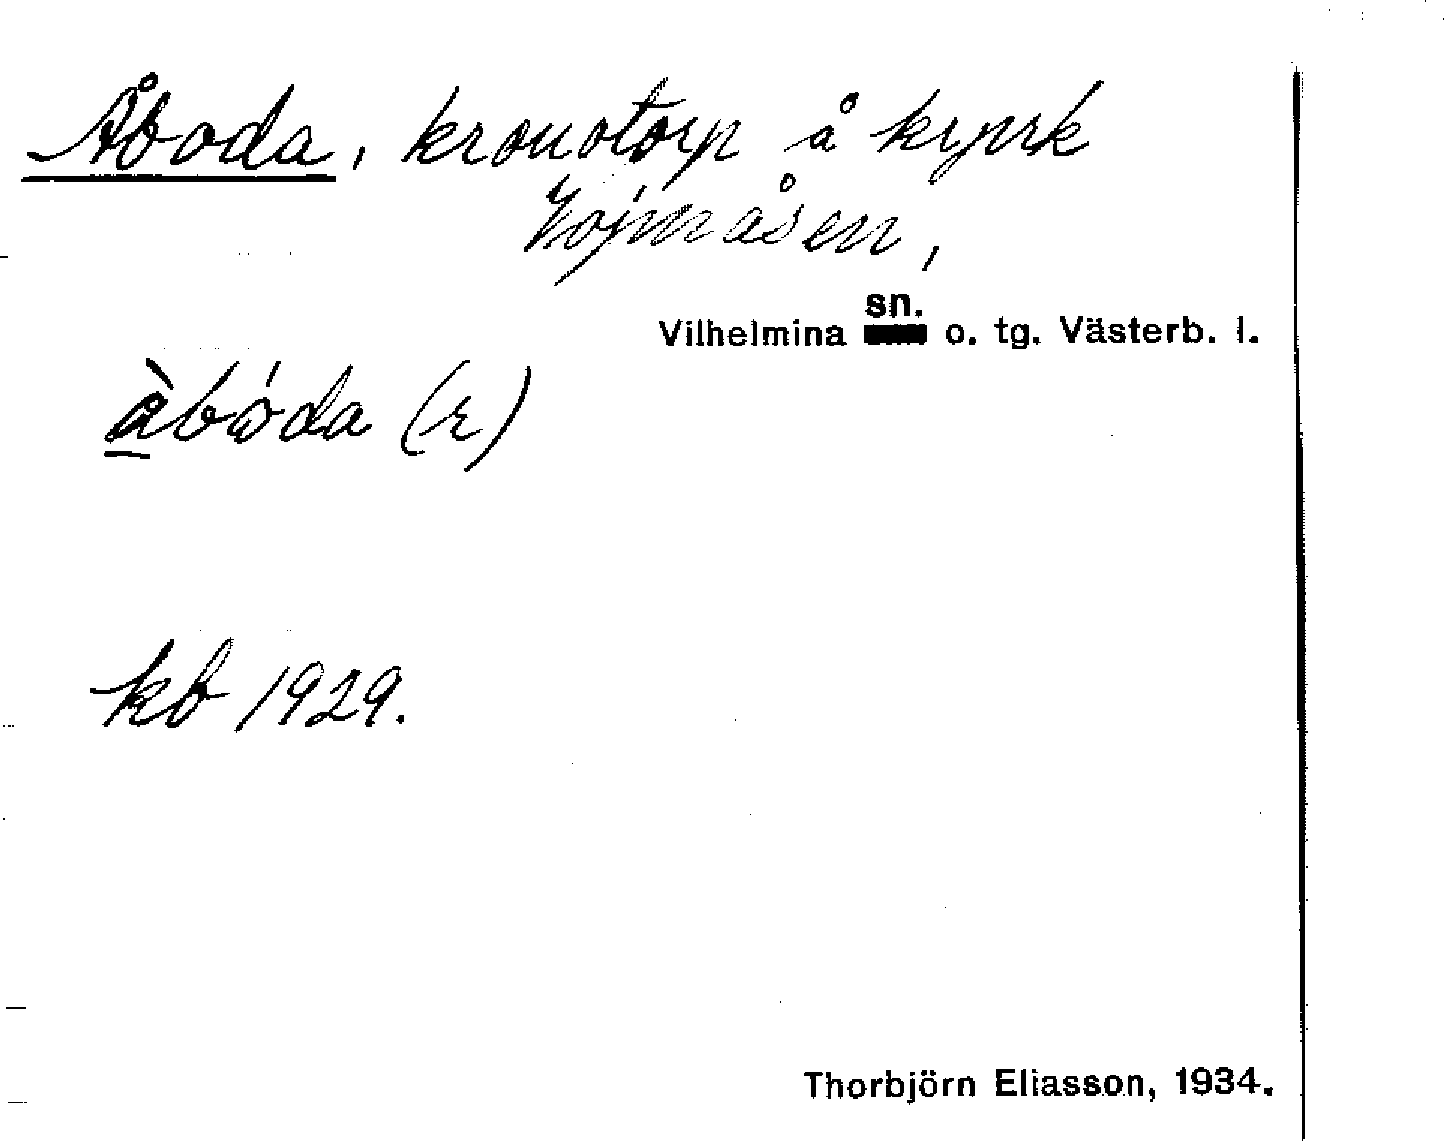 Åboda, kronotorp å krpark
Vojmåsen,
sn.
Vilhelmina o. tg. Västerb. l.
å̀bó̀da (r)
kb 1929.
Thorbjörn Eliasson, 1934.